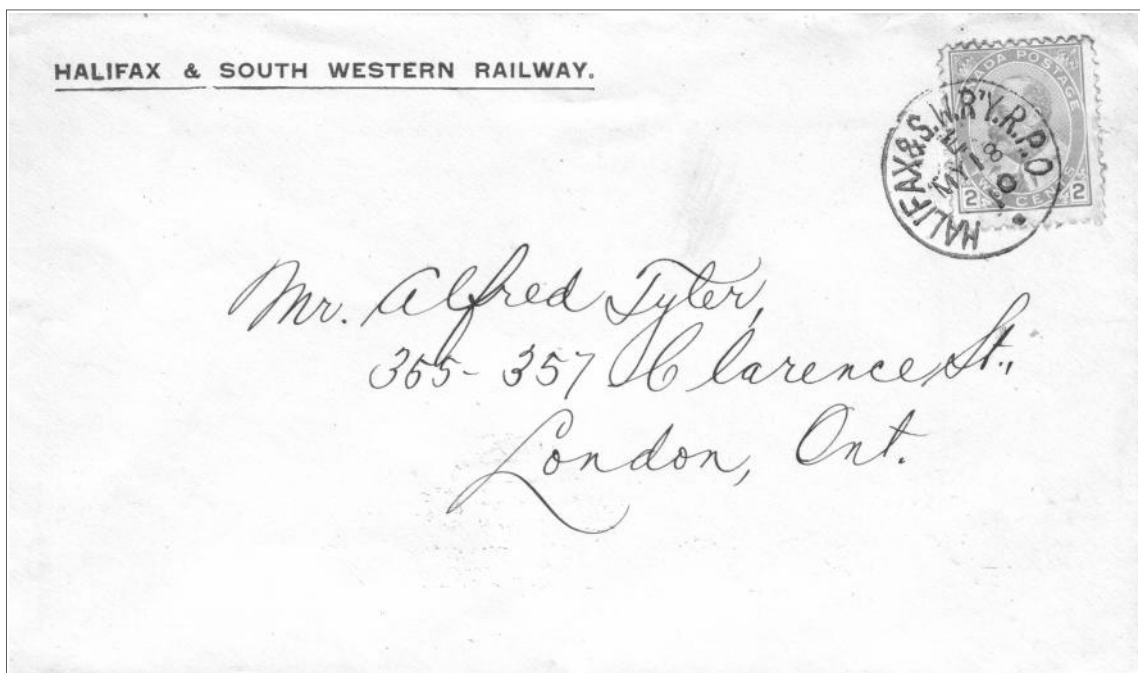 HALIFAX & SOUTH WESTERN RAILWAY.
ADA POSTAGE
2 CENTS 2
HALIFAX & S.W.R'Y.R.P.O
MY 18
Mr. Alfred Tyler,
355-357 Clarence St.,
London, Ont.